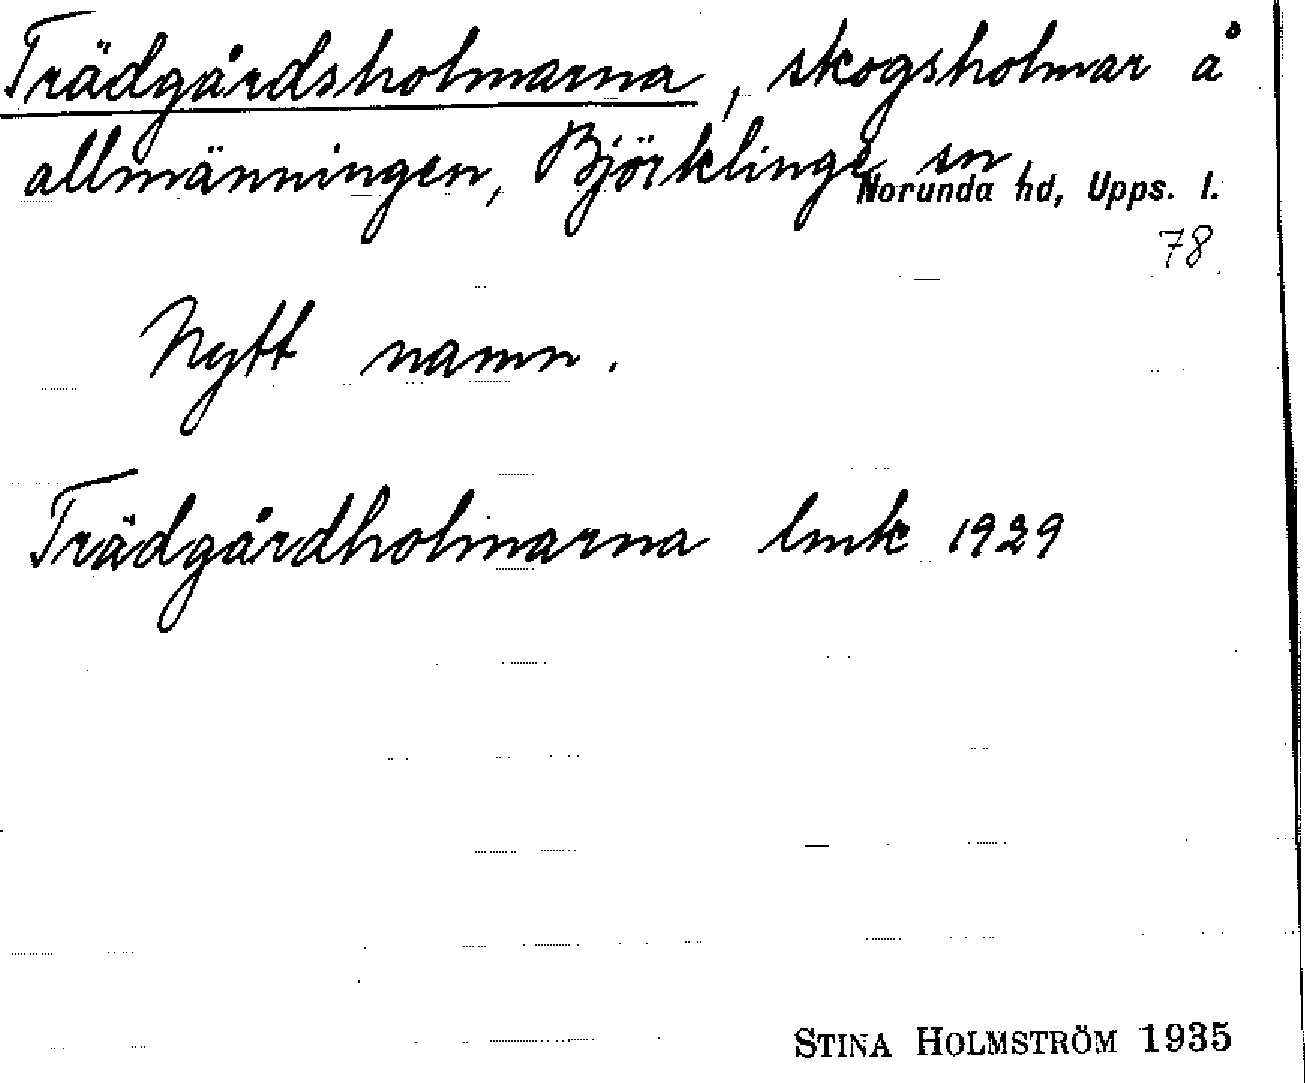 Trädgårdsholmarna, skogsholmar å
allmänningen, Björklinge sn,
Norunda hd, Upps. l.
78
Nytt namn.
Trädgårdholmarna lmk 1929
STINA HOLMSTRÖM 1935